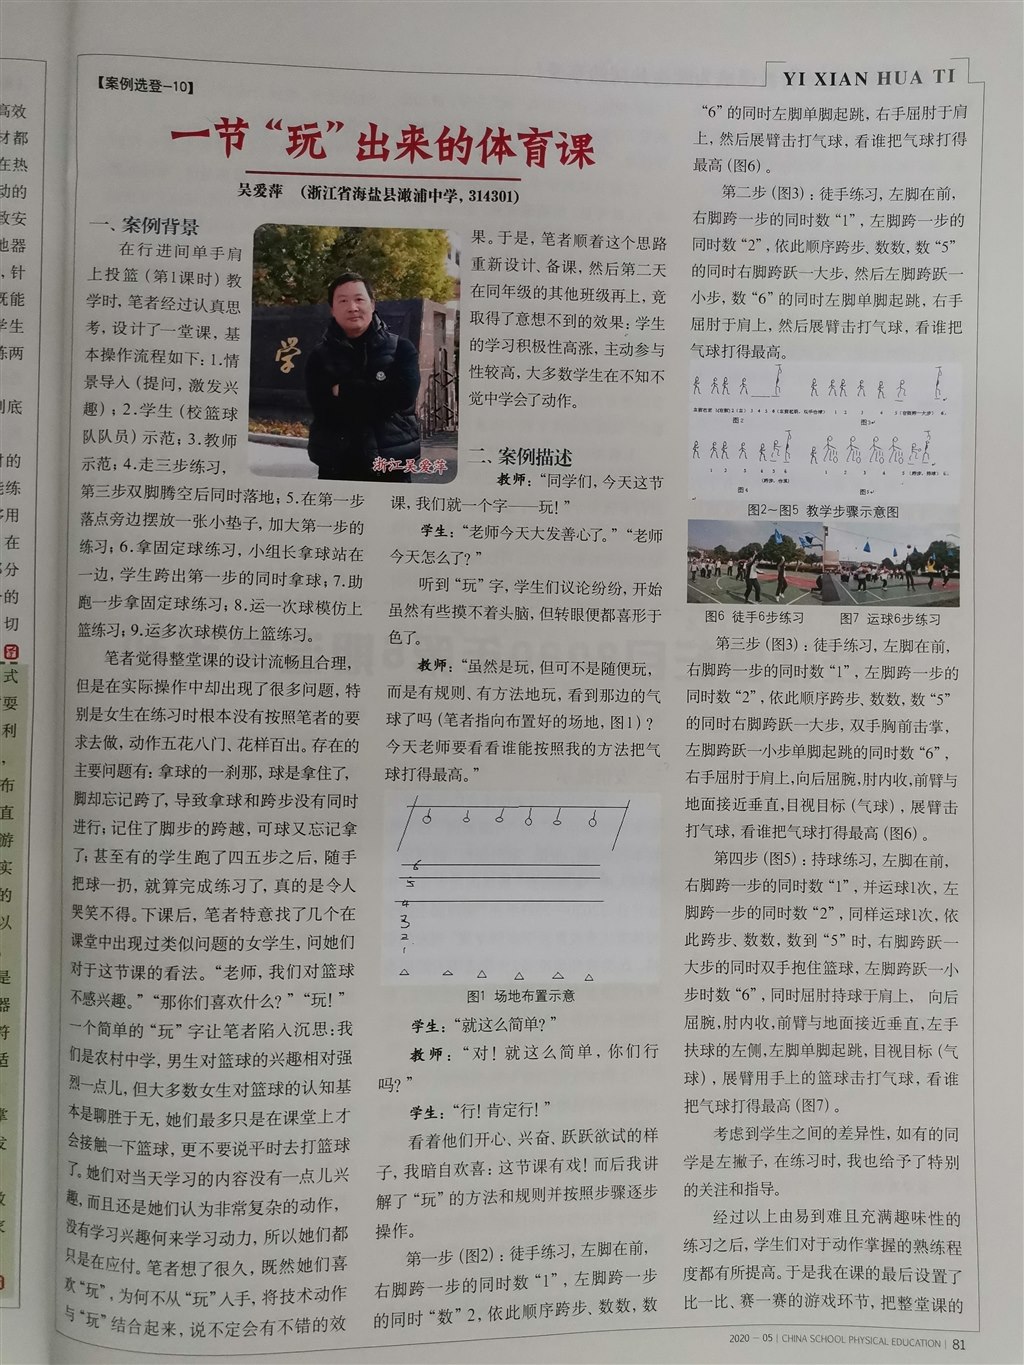 【案例选登—10】
YI XIAN HUA TI
一节“玩”出来的体育课
吴爱萍 (浙江省海盐县澉浦中学，314301)
一、案例背景
在行进间单手肩
上投篮（第1课时）教
学时，笔者经过认真思
考，设计了一堂课，基
本操作流程如下：1.情
景导入（提问，激发兴
趣）；2.学生（校篮球
队队员）示范；3.教师
示范；4.走三步练习，
第三步双脚腾空后同时落地；5.在第一步
落点旁边摆放一张小垫子，加大第一步的
练习；6.拿固定球练习，小组长拿球站在
一边，学生跨出第一步的同时拿球；7.助
跑一步拿固定球练习；8.运一次球模仿上
篮练习；9.运多次球模仿上篮练习。
笔者觉得整堂课的设计流畅且合理，
但是在实际操作中却出现了很多问题，特
别是女生在练习时根本没有按照笔者的要
求去做，动作五花八门、花样百出。存在的
主要问题有：拿球的一刹那，球是拿住了，
脚却忘记跨了，导致拿球和跨步没有同时
进行；记住了脚步的跨越，可球又忘记拿
了；甚至有的学生跑了四五步之后，随手
把球一扔，就算完成练习了，真的是令人
哭笑不得。下课后，笔者特意找了几个在
课堂中出现过类似问题的女学生，问她们
对于这节课的看法。“老师，我们对篮球
不感兴趣。”“那你们喜欢什么？”“玩！”
一个简单的“玩”字让笔者陷入沉思：我
们是农村中学，男生对篮球的兴趣相对强
烈一点儿，但大多数女生对篮球的认知基
本是聊胜于无，她们最多只是在课堂上才
会接触一下篮球，更不要说平时去打篮球
了。她们对当天学习的内容没有一点儿兴
趣，而且还是她们认为非常复杂的动作，
没有学习兴趣何来学习动力，所以她们都
只是在应付。笔者想了很久，既然她们喜
欢“玩”，为何不从“玩”入手，将技术动作
与“玩”结合起来，说不定会有不错的效
学
浙江吴爱萍
果。于是，笔者顺着这个思路
重新设计、备课，然后第二天
在同年级的其他班级再上，竟
取得了意想不到的效果：学生
的学习积极性高涨，主动参与
性较高，大多数学生在不知不
觉中学会了动作。
二、案例描述
教师：“同学们，今天这节
课，我们就一个字——玩！”
学生：“老师今天大发善心了。”“老师
今天怎么了？”
听到“玩”字，学生们议论纷纷，开始
虽然有些摸不着头脑，但转眼便都喜形于
色了。
教师：“虽然是玩，但可不是随便玩，
而是有规则、有方法地玩，看到那边的气
球了吗（笔者指向布置好的场地，图1）？
今天老师要看看谁能按照我的方法把气
球打得最高。”
6
5
4
3
2
1
图1 场地布置示意
学生：“就这么简单？”
教师：“对！就这么简单，你们行
吗？”
学生：“行！肯定行！”
看着他们开心、兴奋、跃跃欲试的样
子，我暗自欢喜：这节课有戏！而后我讲
解了“玩”的方法和规则并按照步骤逐步
操作。
第一步（图2）：徒手练习，左脚在前，
右脚跨一步的同时数“1”，左脚跨一步
的同时“数”2，依此顺序跨步、数数，数
“6”的同时左脚单脚起跳，右手屈肘于肩
上，然后展臂击打气球，看谁把气球打得
最高（图6）。
第二步（图3）：徒手练习，左脚在前，
右脚跨一步的同时数“1”，左脚跨一步的
同时数“2”，依此顺序跨步、数数，数“5”
的同时右脚跨跃一大步，然后左脚跨跃一
小步，数“6”的同时左脚单脚起跳，右手
屈肘于肩上，然后展臂击打气球，看谁把
气球打得最高。
图2
图3
图4
图5
图2～图5 教学步骤示意图
图6 徒手6步练习 图7 运球6步练习
第三步（图3）：徒手练习，左脚在前，
右脚跨一步的同时数“1”，左脚跨一步的
同时数“2”，依此顺序跨步、数数，数“5”
的同时右脚跨跃一大步，双手胸前击掌，
左脚跨跃一小步单脚起跳的同时数“6”，
右手屈肘于肩上，向后屈腕，肘内收，前臂与
地面接近垂直，目视目标（气球），展臂击
打气球，看谁把气球打得最高（图6）。
第四步（图5）：持球练习，左脚在前，
右脚跨一步的同时数“1”，并运球1次，左
脚跨一步的同时数“2”，同样运球1次，依
此跨步、数数，数到“5”时，右脚跨跃一
大步的同时双手抱住篮球，左脚跨跃一小
步时数“6”，同时屈肘持球于肩上， 向后
屈腕，肘内收，前臂与地面接近垂直，左手
扶球的左侧，左脚单脚起跳，目视目标（气
球），展臂用手上的篮球击打气球，看谁
把气球打得最高（图7）。
考虑到学生之间的差异性，如有的同
学是左撇子，在练习时，我也给予了特别
的关注和指导。
经过以上由易到难且充满趣味性的
练习之后，学生们对于动作掌握的熟练程
度都有所提高。于是我在课的最后设置了
比一比、赛一赛的游戏环节，把整堂课的
2020－05 | CHINA SCHOOL PHYSICAL EDUCATION | 81